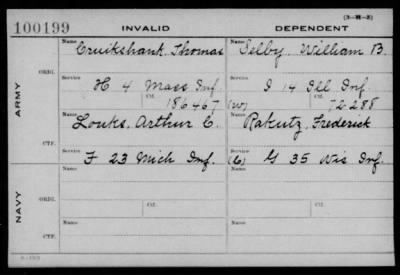 (3-H-2)
100199 INVALID DEPENDENT
ARMY
ORIG.
Name Cruikshank, Thomas Name Selby, William B.
Service H 4 Mass Inf. Service I 14 Ill Inf.
Ctf. 186467 (W) Ctf. 72288
CTF.
Name Louks, Arthur C. Name Rakutz, Frederick
Service F 23 Mich Inf. (C) Service G 35 Wis Inf.
NAVY
ORIG.
Name Name
Service Ctf. Service Ctf.
CTF.
Name Name